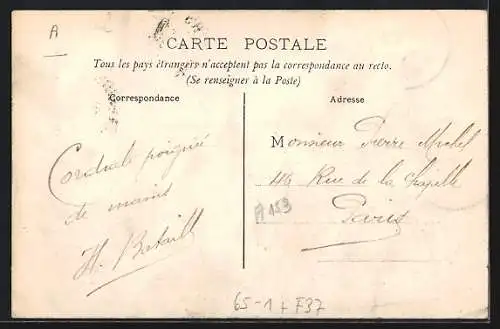 A
CARTE POSTALE
Tous les pays étrangers n'acceptent pas la correspondance au recto.
(Se renseigner à la Poste)
Correspondance
Cordiale poignée
de mains
H. Bataill
Adresse
Monsieur Pierre
Rue de la Chapelle
Paris
A153
65-1 + F37